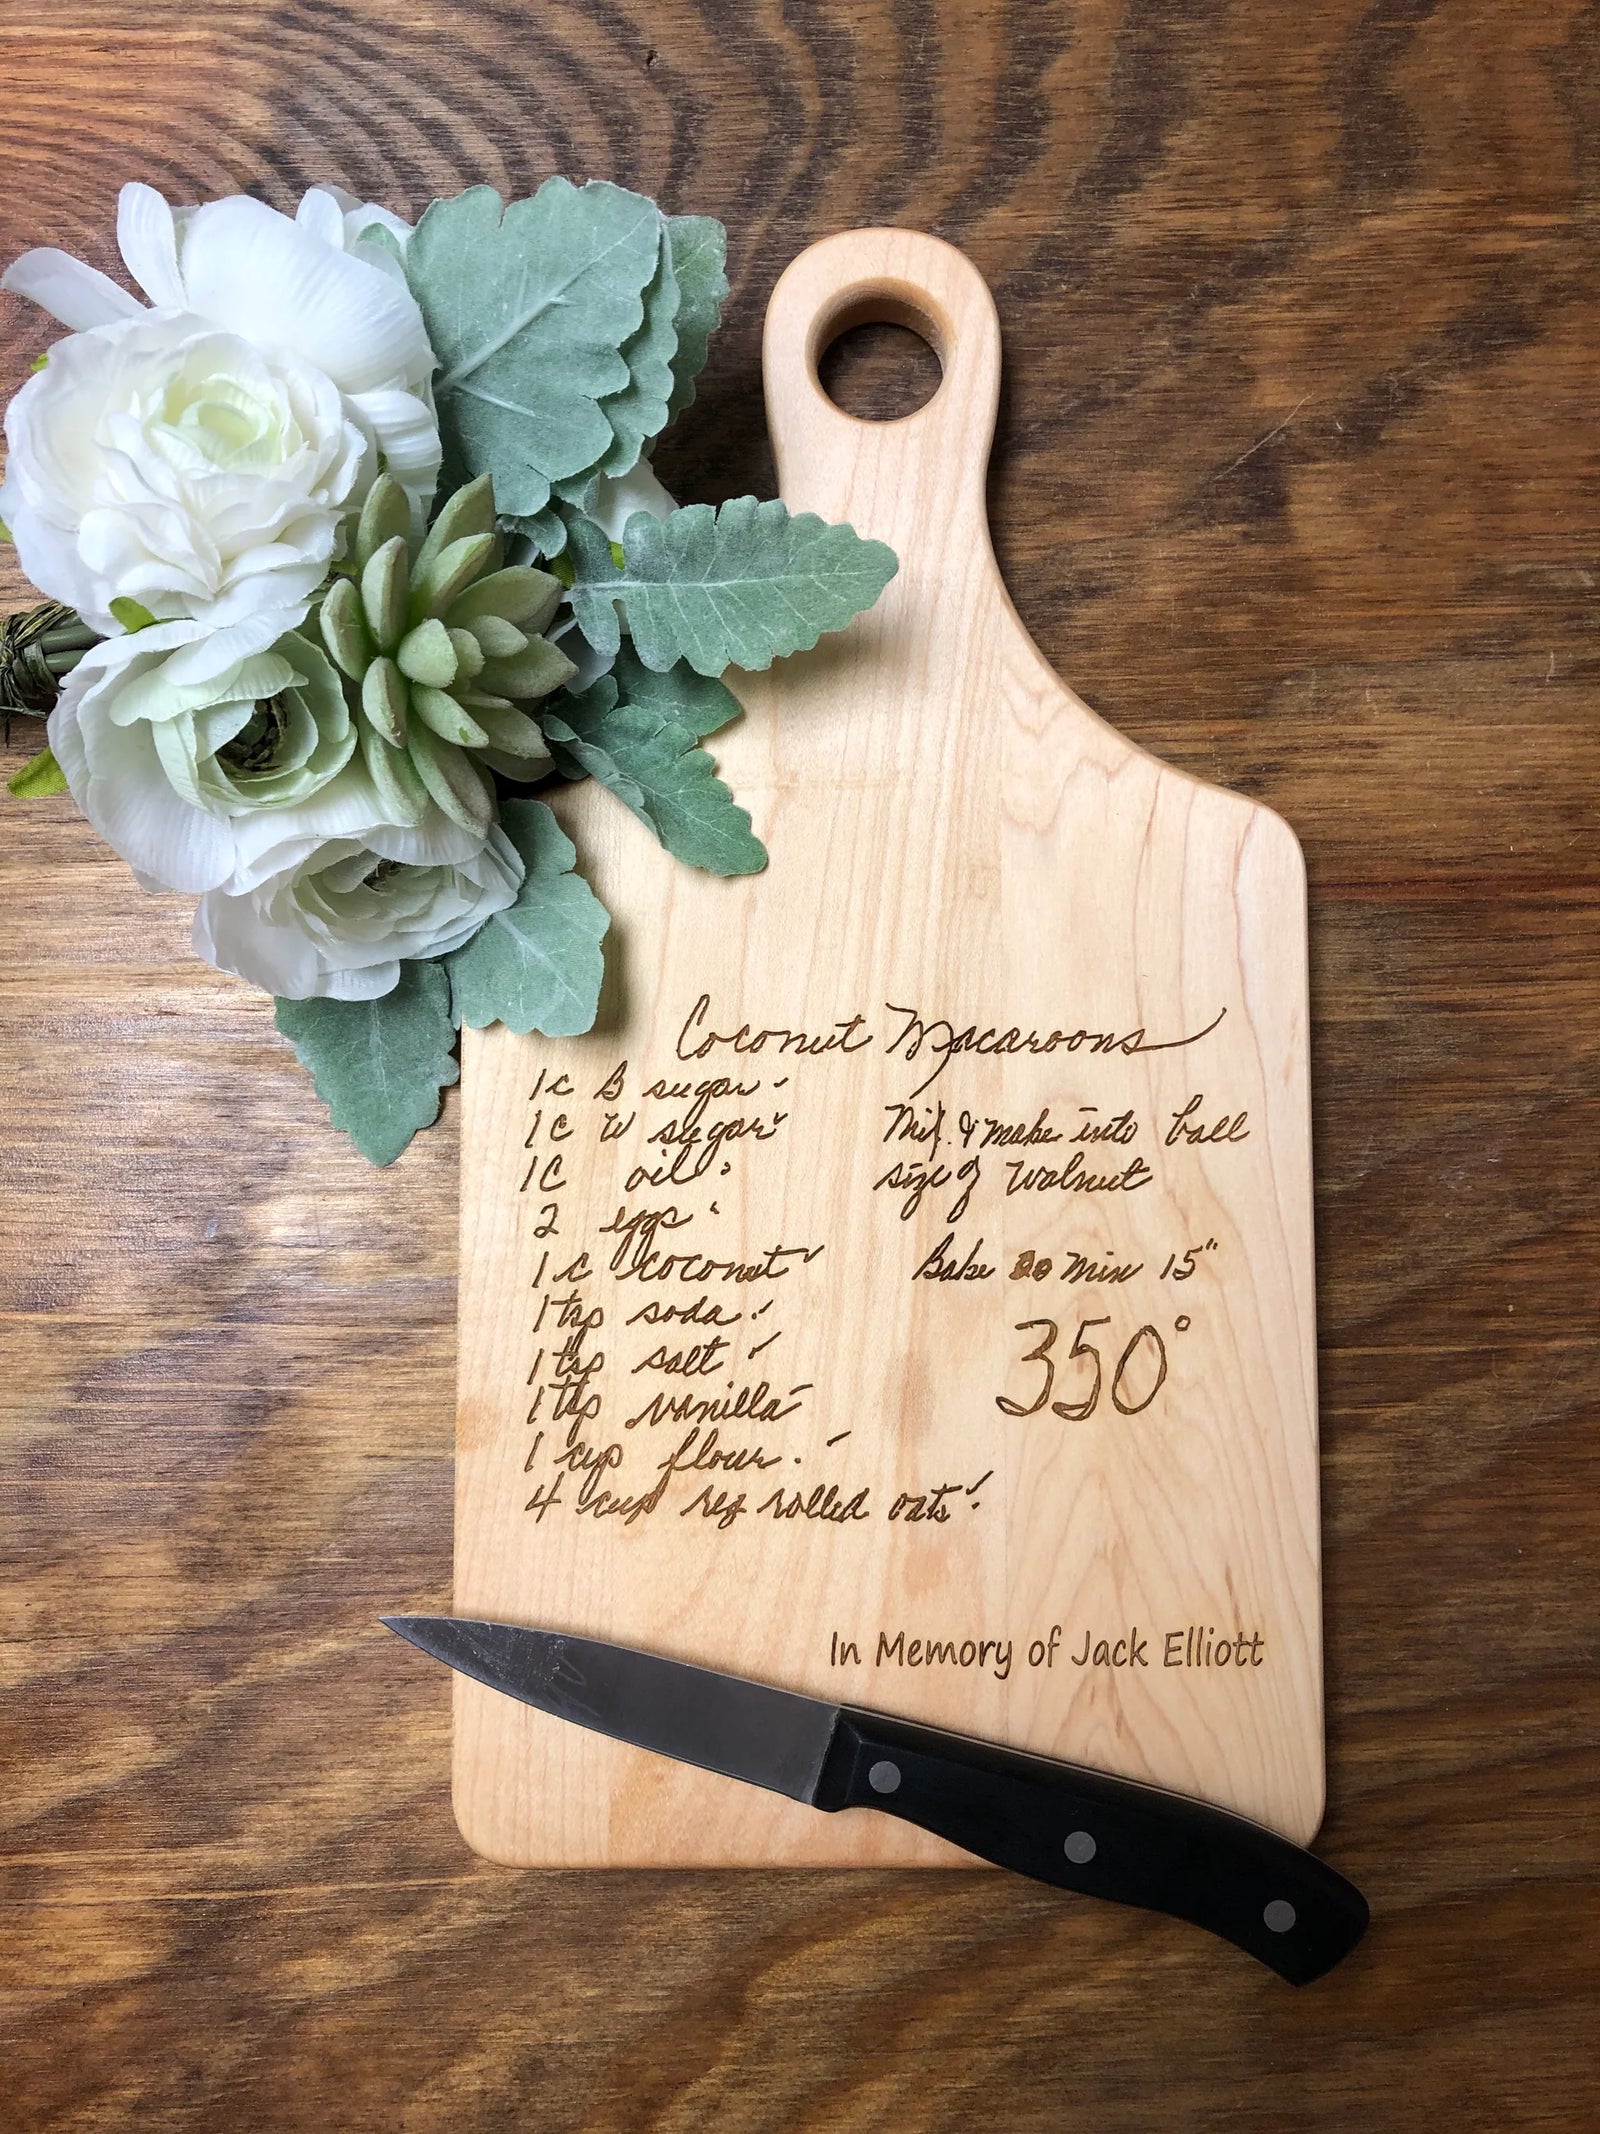 Coconut Macaroons
1c B sugar
1C W sugar
1C oil
2 eggs
1 c coconut
1 tsp soda
1 tsp salt
1 tsp vanilla
1 cup flour.
4 cup reg rolled oats
Mix & make into ball
size of Walnut
Bake min 15"
350°
In Memory of Jack Elliott